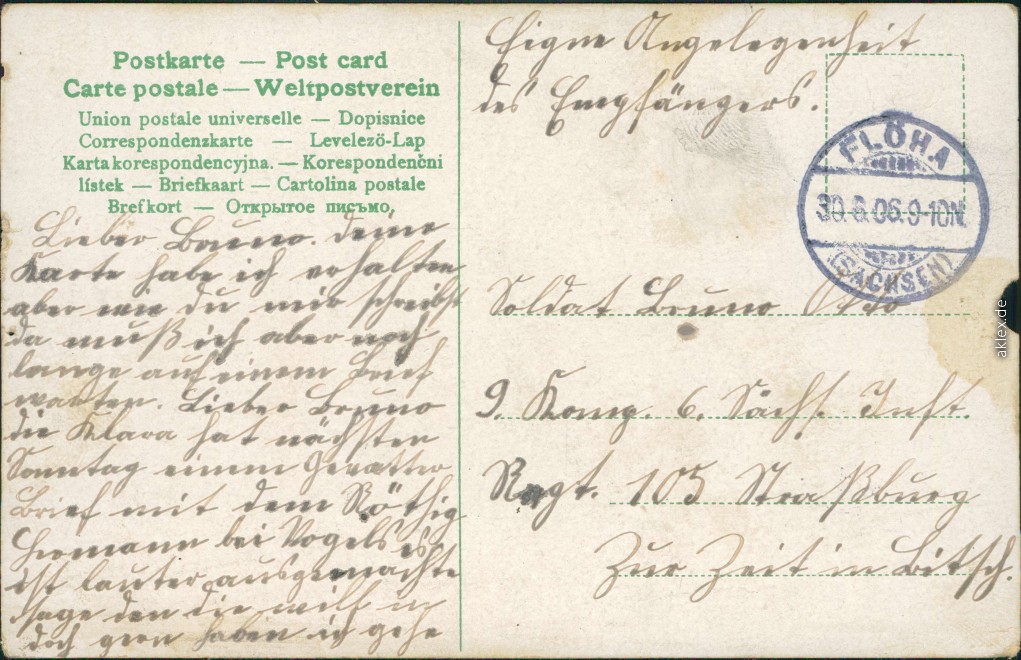 Postkarte — Post card
Carte postale — Weltpostverein
Union postale universelle — Dopisnice
Correspondenzkarte — Levelező-Lap
Karta korespondencyjna. — Korespondenční
lístek — Briefkaart — Cartolina postale
Brefkort — Открытое письмо.
Lieber Bruno. deine
Karte habe ich erhalten
aber wie du mir schreibst
da muß ich aber noch
lange auf einem Brief
warten. Lieber Bruno
die Klara hat nächsten
Sonntag einem Gevatter
Brief mit dem Röthig
Hermann bei Vogels es
ist lauter ausgemachte
sage den die will
doch gern haben ich gehe
Eigne Angelegenheit
des Empfängers.
FLÖHA
30.8.06.9-10N.
(SACHSEN)
Soldat Bruno Otto
9. Komp. 6. Sächs. Inft.
Regt. 105 Straßburg
Zur Zeit in Bitsch.
aklex.de